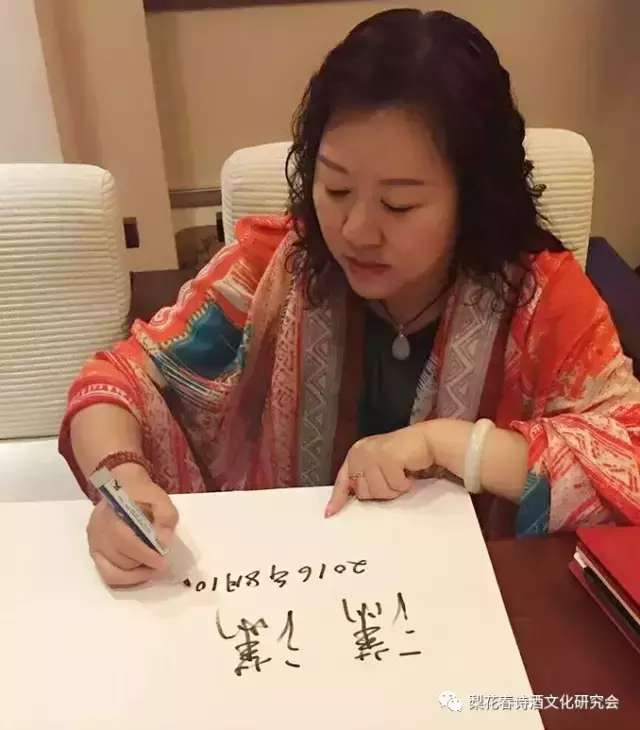 潇潇
2016年8月10
梨花春诗酒文化研究会